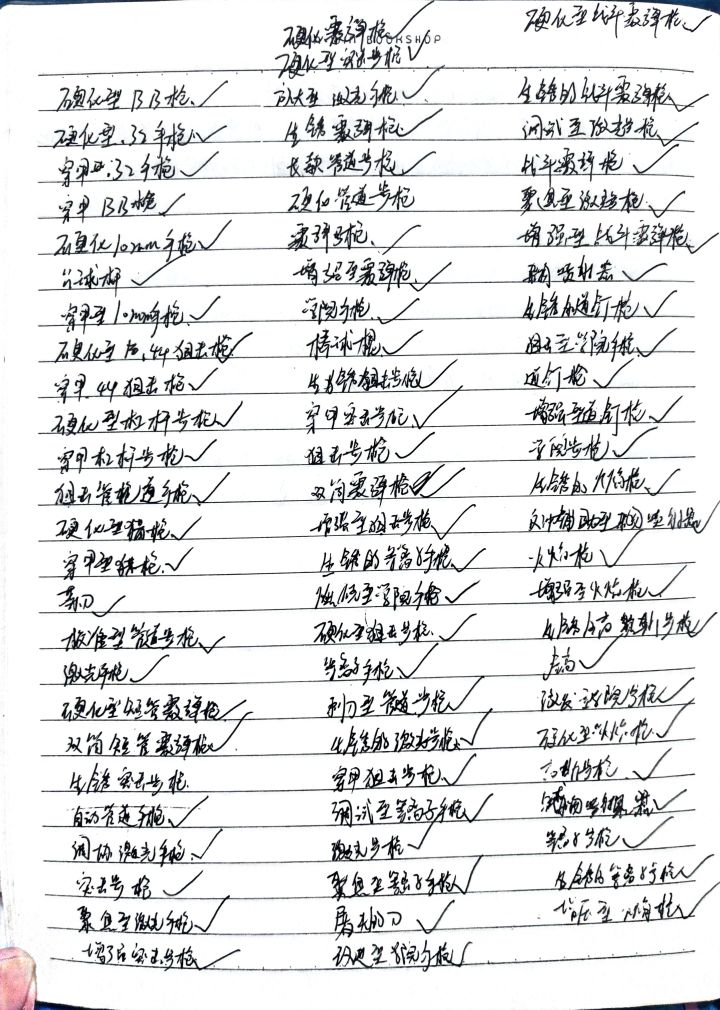 硬化型BB枪
硬化型.32手枪
穿甲型.32手枪
穿甲BB枪
硬化10mm手枪
台球杆
穿甲型10mm手枪
硬化型.44狙击枪
穿甲.44狙击枪
硬化型杠杆步枪
穿甲杠杆步枪
狙击管道手枪
硬化型猎枪
穿甲型猎枪
菜刀
校准型管道步枪
激光手枪
硬化型短管霰弹枪
双筒短管霰弹枪
生锈突击步枪
自动管道手枪
调协激光手枪
突击步枪
聚焦型激光手枪
增强突击步枪
硬化霰弹枪
BOOKSHOP
硬化型突击步枪
放大型激光手枪
生锈霰弹枪
长款管道步枪
硬化管道步枪
霰弹枪
增强型霰弹枪
学院手枪
棒球棍
生锈狙击步枪
穿甲突击步枪
狙击步枪
双筒霰弹枪
增强型狙击步枪
生锈的等离子手枪
学院手枪
硬化型狙击步枪
等离子手枪
利刃型管道步枪
生锈的激光步枪
穿甲狙击步枪
调试型等离子手枪
激光步枪
聚焦型等离子手枪
屠夫的刀
学院步枪
硬化型战斗霰弹枪
生锈的战斗霰弹枪
调试型激光步枪
战斗霰弹枪
聚焦型激光步枪
增强型战斗霰弹枪
生锈的道钉枪
狙击型学院手枪
道钉枪
增强型道钉枪
学院步枪
生锈的火焰枪
火焰枪
增强型火焰枪
生锈的高斯步枪
硬化型火焰枪
高斯步枪
等离子步枪
生锈的等离子步枪
增压型火焰枪